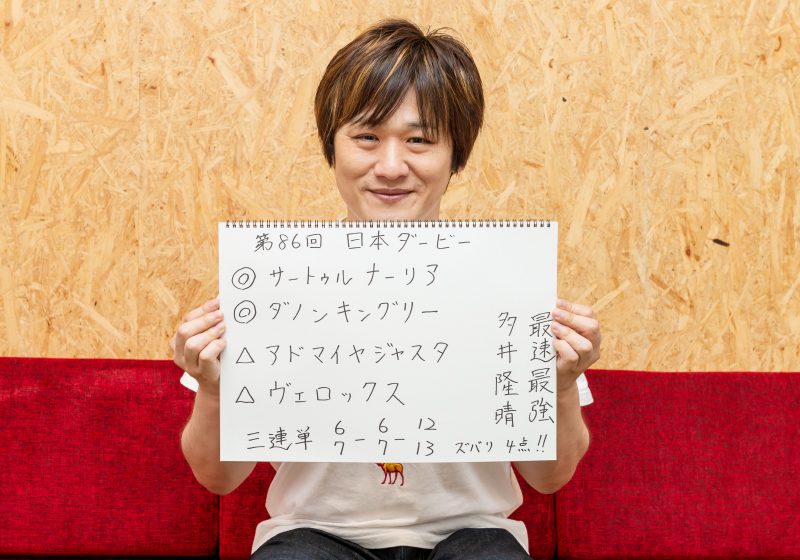 第86回 日本ダービー
◎ サートゥルナーリア
◎ ダノンキングリー
△ アドマイヤジャスタ
△ ヴェロックス
三連単 6 7 - 6 7 - 12 13 ズバリ 4点!!
最速最強
多井隆晴